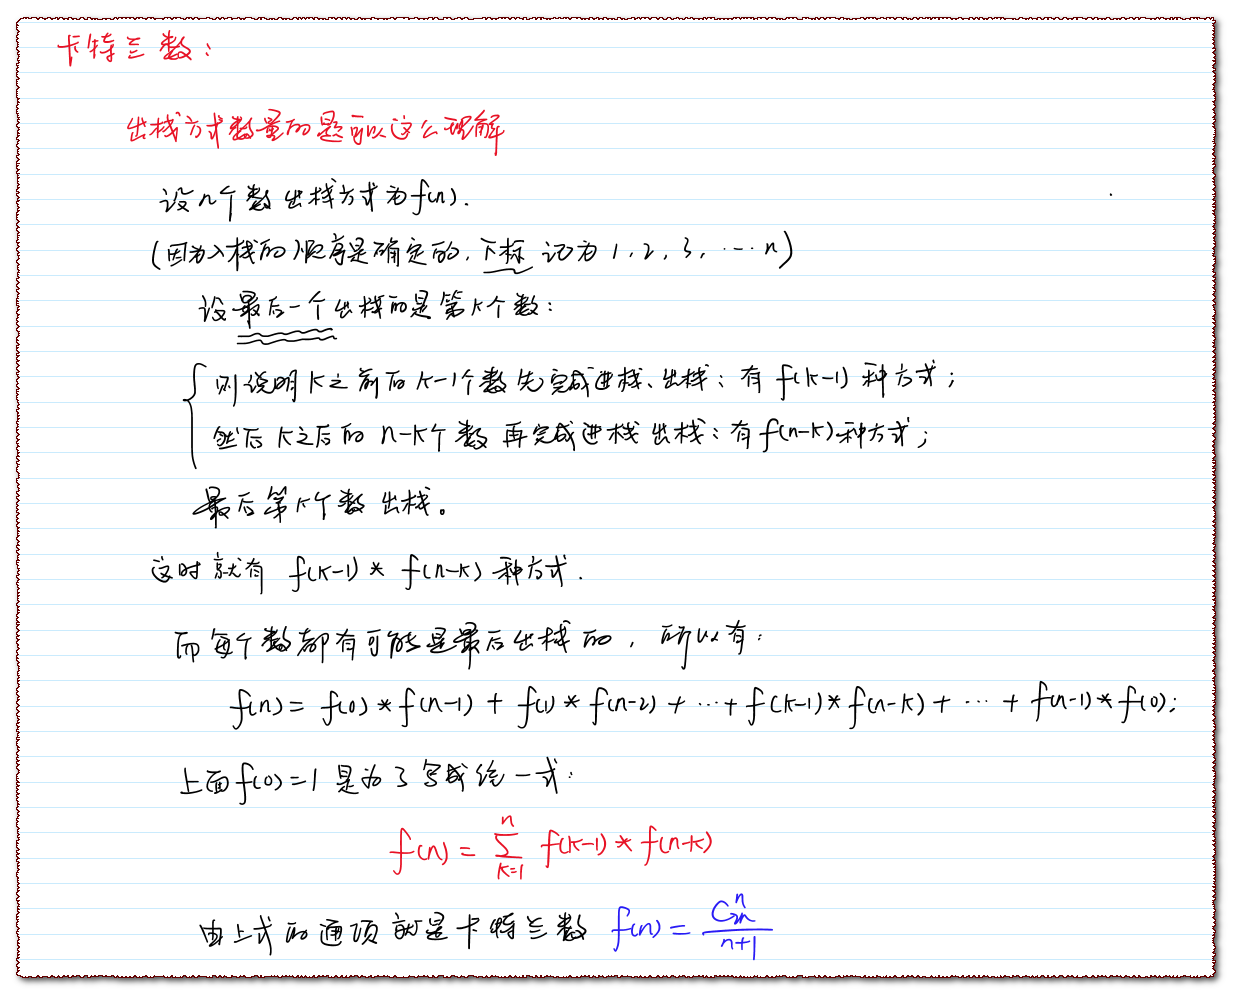 卡特兰数：
出栈方式数量的题可以这么理解
设n个数出栈方式为f(n).
(因为入栈的顺序是确定的，下标记为1，2，3，……n)
设最后一个出栈的是第k个数：
则说明k之前的k-1个数先完成进栈、出栈：有f(k-1)种方式；
然后k之后的n-k个数再完成进栈出栈：有f(n-k)种方式；
最后第k个数出栈。
这时就有 f(k-1) * f(n-k) 种方式.
而每个数都有可能是最后出栈的，所以有：
f(n) = f(0) * f(n-1) + f(1) * f(n-2) + … + f(k-1) * f(n-k) + … + f(n-1) * f(0);
上面f(0)=1是为了写成统一式：
f(n) = \sum_{k=1}^{n} f(k-1) * f(n-k)
由上式的通项就是卡特兰数 f(n) = \frac{C_{2n}^{n}}{n+1}